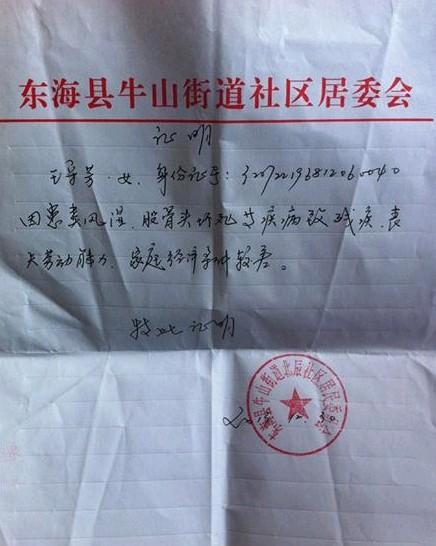 东海县牛山街道社区居委会
证明
王 芳，女，身份证号：
因患类风湿、股骨头坏死等疾病致残疾、丧
失劳动能力、家庭经济条件较差。
特此证明
东海县牛山街道北辰社区居民委员会